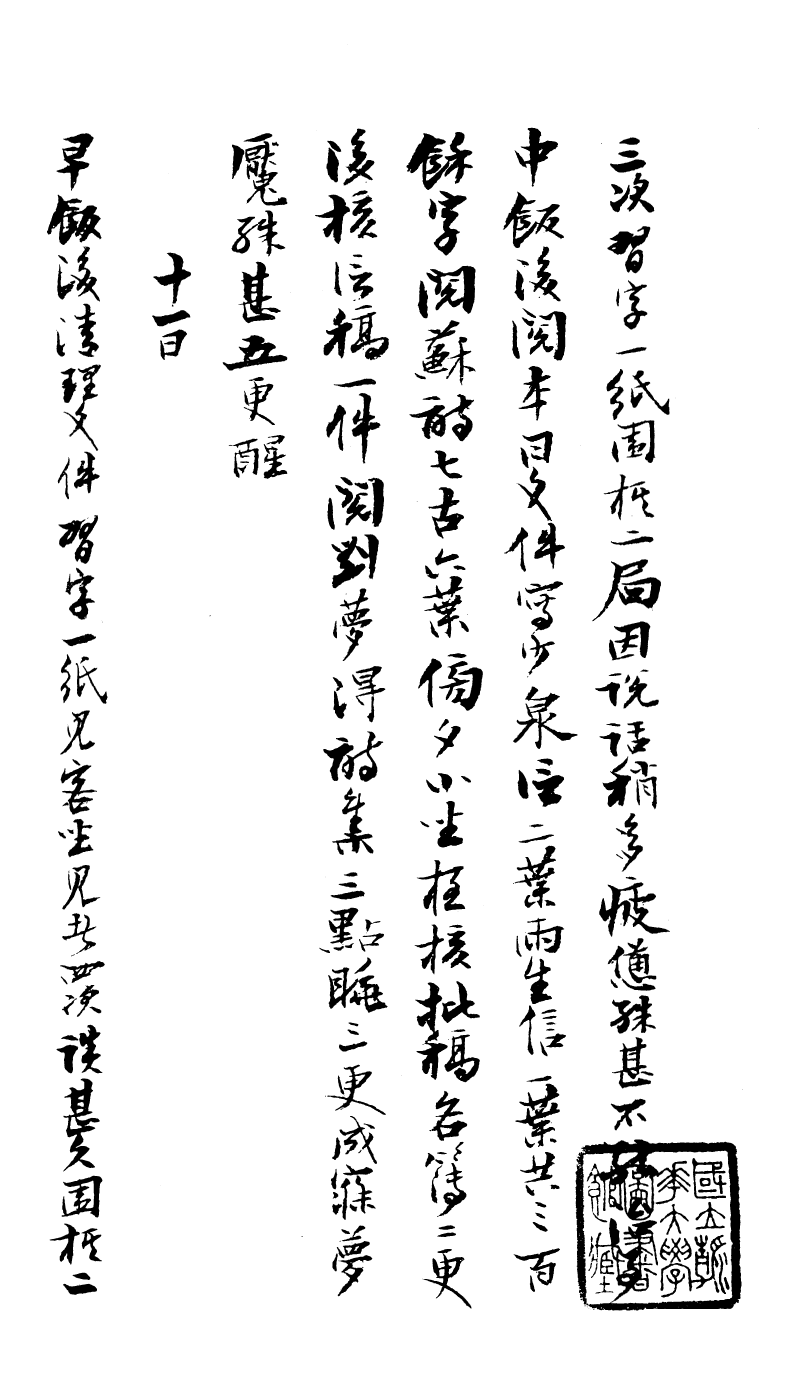 三次習字一紙圍棋二局因説話稍多疲憊殊甚不
中飯後閱本日文件寫少泉信二葉雨生信一葉共三百
餘字閱蘇詩七古六葉傍夕小坐夜核批稿各簿二更
後核信稿一件閱劉夢得詩集三點睡三更成寐夢
魘殊甚五更醒
十一日
早飯後清理文件習字一紙見客坐見者四次談甚久圍棋二
國立
大學
圖書